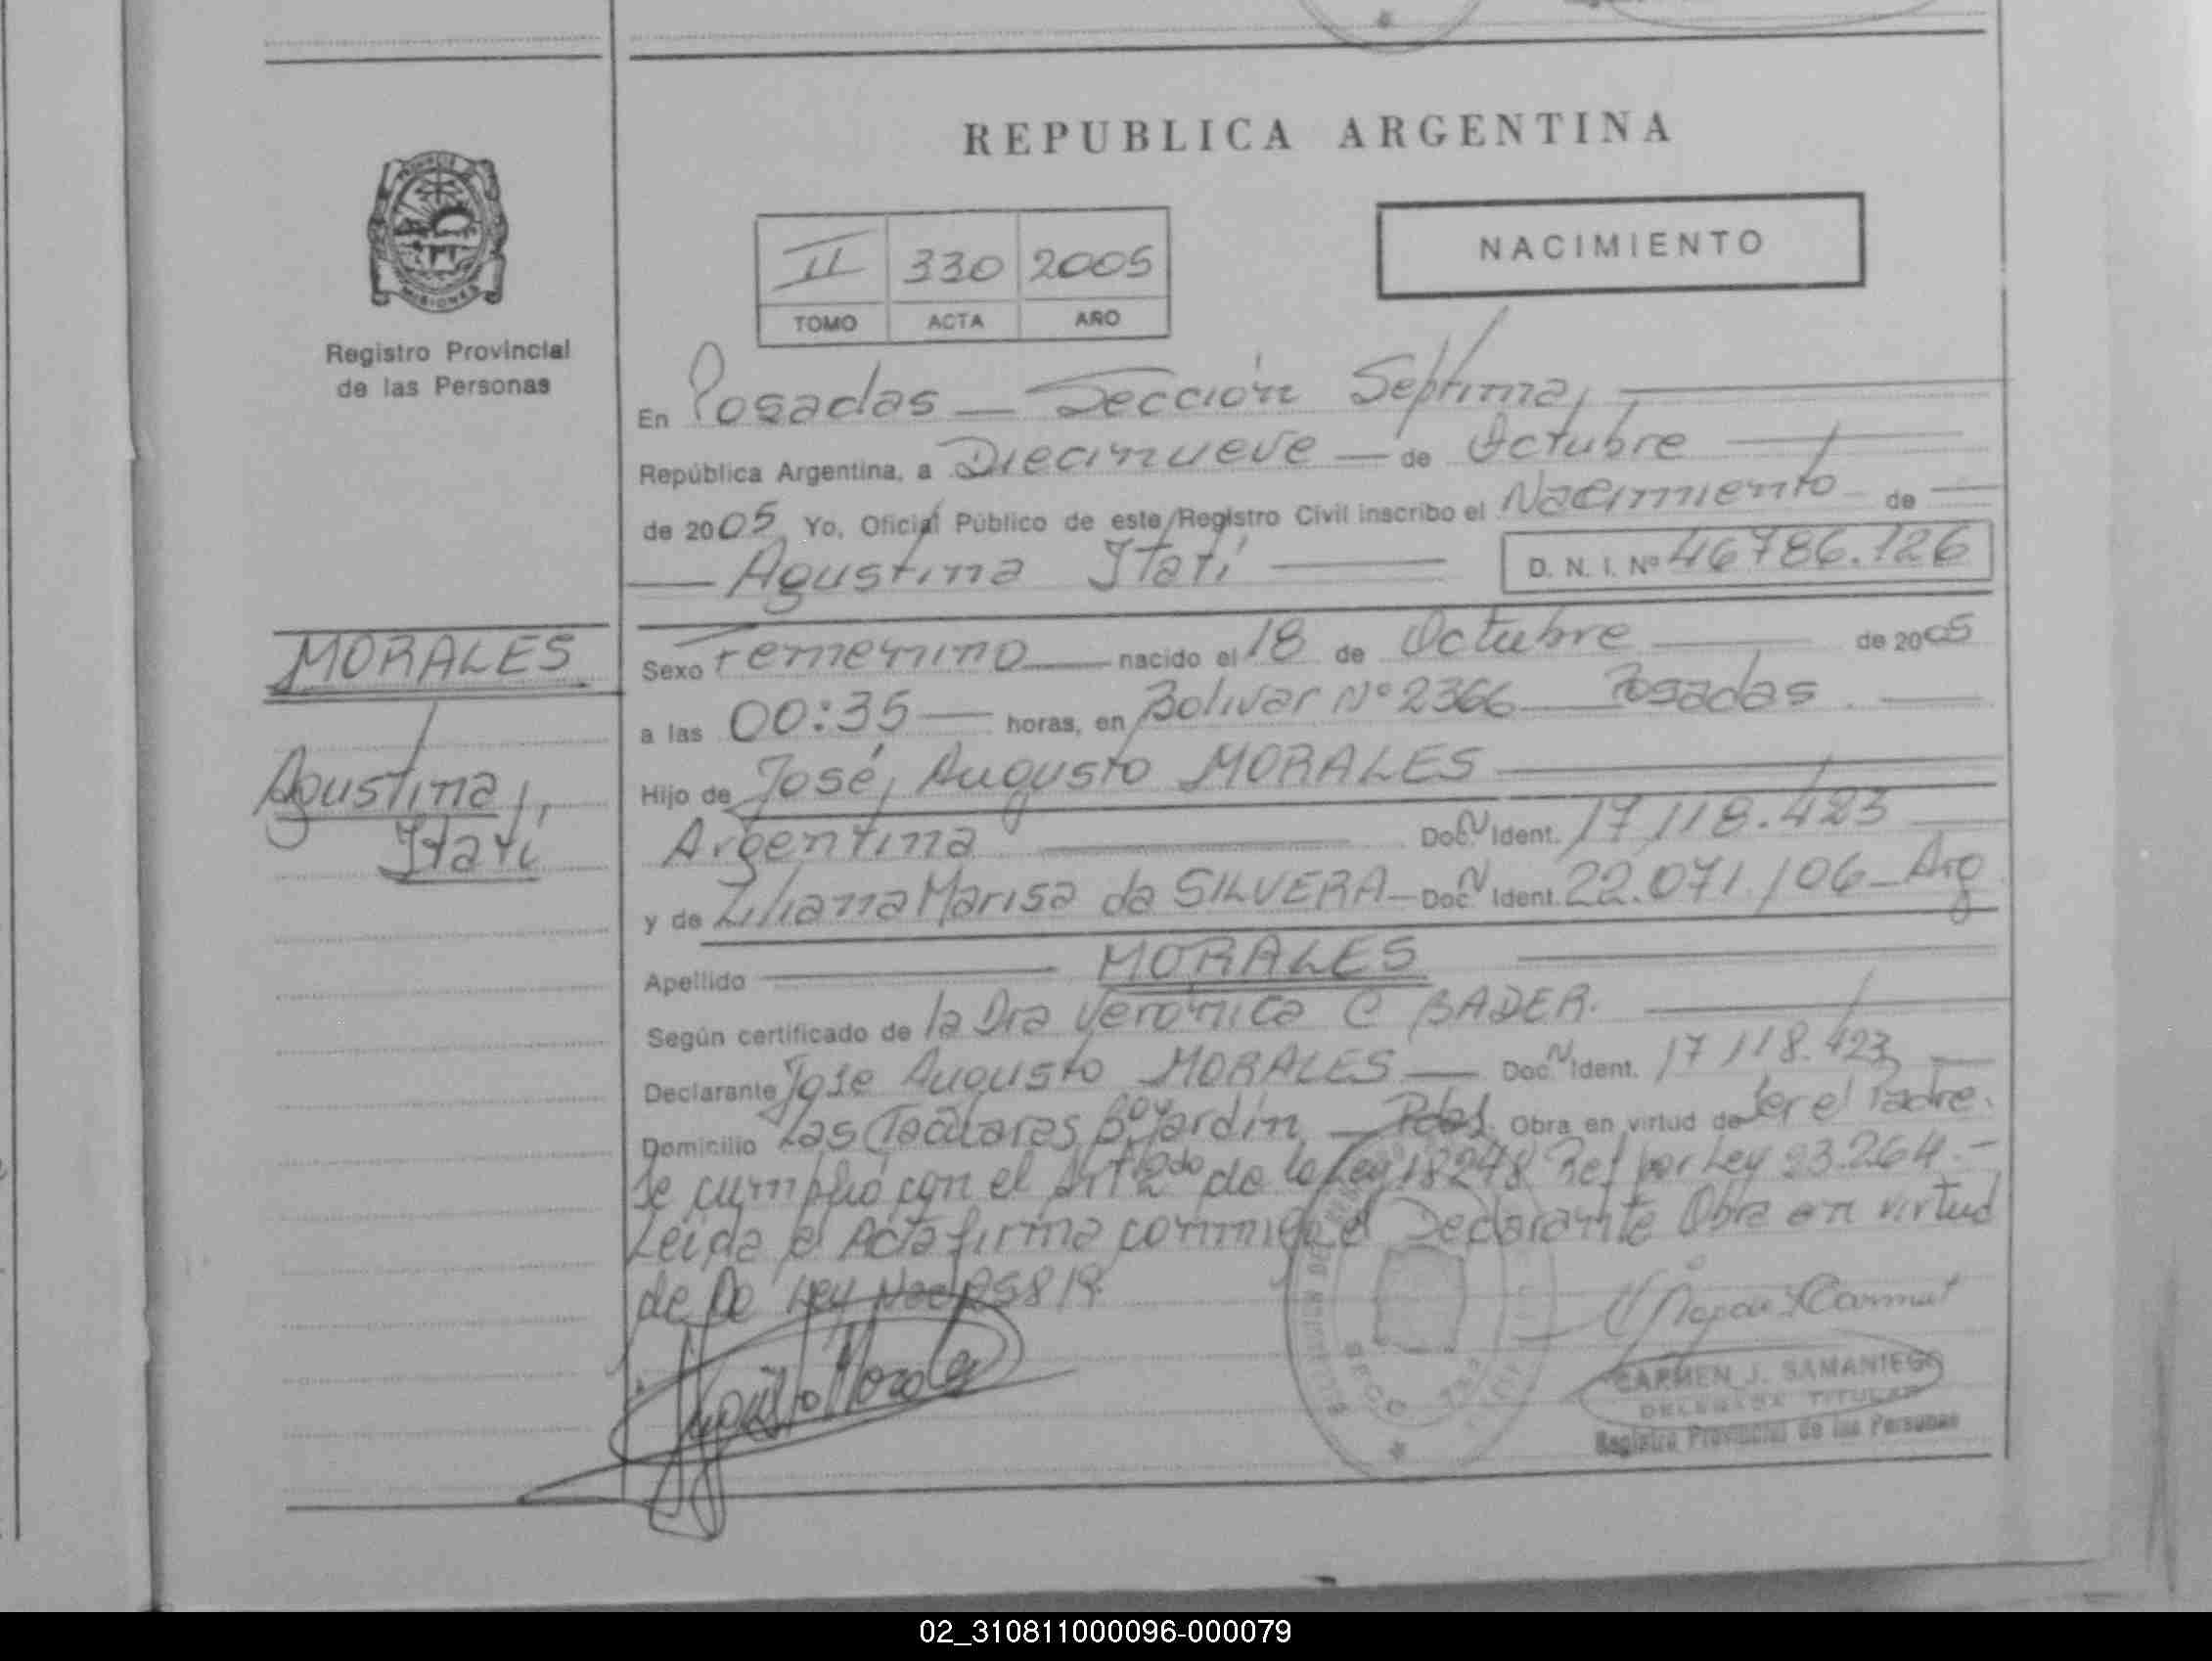 REPUBLICA ARGENTINA
PROVINCIA DE MISIONES
Registro Provincial
de las Personas
II 330 2005
TOMO ACTA AÑO
NACIMIENTO
En Posadas — Sección Séptima,
República Argentina, a Diecinueve — de Octubre
de 2005 Yo, Oficial Público de este Registro Civil inscribo el Nacimiento de
Agustina Itatí D. N. I. Nº 46786.126
MORALES
Agustina
Itatí
Sexo Femenino nacido el 18 de Octubre de 2005
a las 00:35 horas, en Bolivar Nº 2366 Posadas.
Hijo de José Augusto MORALES
Argentina Doc. N Ident. 17118.423
y de Liliana Marisa da SILVERA — Doc. N Ident. 22.071.106 — Arg
Apellido MORALES
Según certificado de la Dra Verónica C BADER.
Declarante José Augusto MORALES — Doc. N Ident. 17118.423
Domicilio Las Bº Jardín — Pdas. Obra en virtud de Ser el Padre.
Se cumplió con el Art 2do de la Ley 18248 Ref por Ley 23.264.-
Leida el Acta firma conmigo el Declarante Obra en virtud
de
Augusto Morales
SECC 7ma
CARMEN J. SAMANIEGO
DELEGADA TITULAR
Registro Provincial de las Personas
02_310811000096-000079